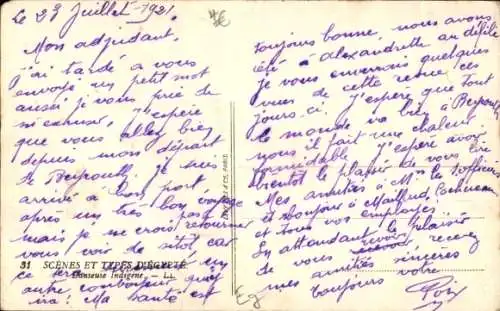 Le 23 Juillet 1921.
Mon adjudant,
J'ai tardé a vous
envoyé un petit mot
aussi je vous prie de
m'excuser, j'espère
que vous allez bien
depuis mon départ
de Beyrouth. je suis
arrivé a bon port
après un très bon voyage
mais je ne crois pas retourner
vous voir de sitôt car
31 SCÈNES ET TYPES D'ÉGYPTE
Danseuse Indigène. — LL
autre
ira! Ma santé est
toujours bonne, nous avons
été à alexandrette au défilé
je vous enverrais quelques
vues de cette revue ces
jours-ci. J'espère que tout
le monde va bien à Beyrouth
il fait une chaleur
formidable j'espère avoir
bientôt le plaisir de vous lire
Mes amitiés à
et bonjour à
et tous vos employés.
En attendant le plaisir
de vous revoir, recevez
mes amitiés sincères
toujours votre